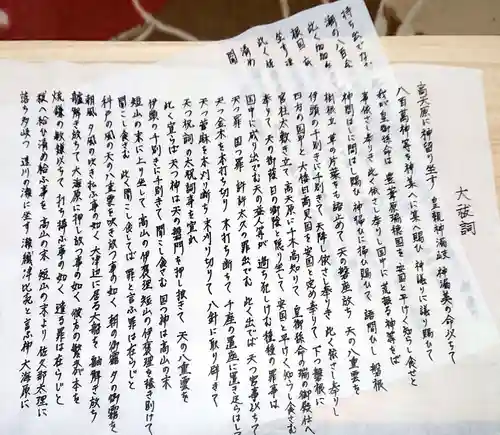 大祓詞
高天原に神留り坐す 皇親神漏岐 神漏美の命以ちて
八百萬神等を神集へに集へ賜ひ 神議りに議り賜ひて
我が皇御孫命は 豊葦原瑞穂國を 安国と平けく知ろし食せと
事依さし奉りき 此く依さし奉りし国中に 荒振る神等をば
神問はしに問はし賜ひ 神掃ひに掃ひ賜ひて 語問ひし 磐根
樹根立 草の片葉をも語止めて 天の磐座放ち 天の八重雲を
伊頭の千別きに千別きて 天降し依さし奉りき 此く依さし奉りし
四方の国中と 大倭日高見国を安国と定め奉りて 下つ磐根に
宮柱太敷き立て 高天原に千木高知りて 皇御孫命の瑞の御殿仕へ
奉りて 天の御蔭 日の御蔭と隠り坐して 安国と平けく知ろし食さむ
国中に成り出でむ天の益人等が 過ち犯しけむ種種の罪事は
天つ罪 国つ罪 許許太久の罪出でむ 此く出でば 天つ宮事以ちて
天つ金木を本打ち切り 末打ち断ちて 千座の置座に置き足らはして
天つ菅麻を本刈り断ち 末刈り切りて 八針に取り辟きて
天つ祝詞の太祝詞事を宣れ
此く宣らば 天つ神は天の磐門を押し披きて 天の八重雲を
伊頭の千別きに千別きて 聞こし食さむ 国つ神は高山の末
短山の末に上り坐して 高山の伊褒理 短山の伊褒理を掻き別けて
聞こし食さむ 此く聞こし食してば 罪と言ふ罪は在らじと
科戸の風の天の八重雲を吹き放つ事の如く 朝の御霧 夕の御霧を
朝風 夕風の吹き払ふ事の如く 大津辺に居る大船を 舳解き放ち
艫解き放ちて 大海原に押し放つ事の如く 彼方の繁木が本を
焼鎌の敏鎌以ちて 打ち掃ふ事の如く 遺る罪は在らじと
祓へ給ひ清め給ふ事を 高山の末 短山の末より 佐久那太理に
落ち多岐つ 速川の瀬に坐す瀬織津比売と言ふ神 大海原に
持ち出でなむ